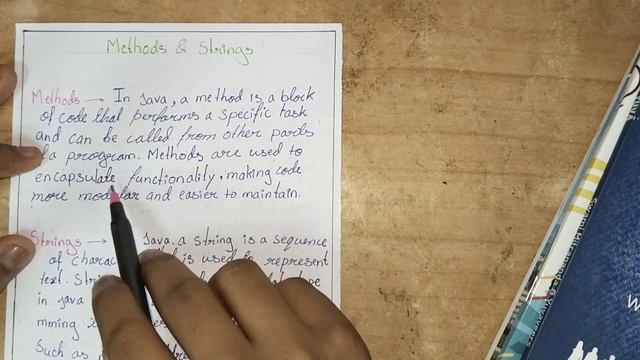 Methods & Strings
Methods → In Java, a method is a block
of code that performs a specific task
and can be called from other parts
a program. Methods are used to
encapsulate functionality, making code
more modular and easier to maintain.
Strings → Java, a string is a sequence
of charac is used to represent
text.
in java
mming
Such as